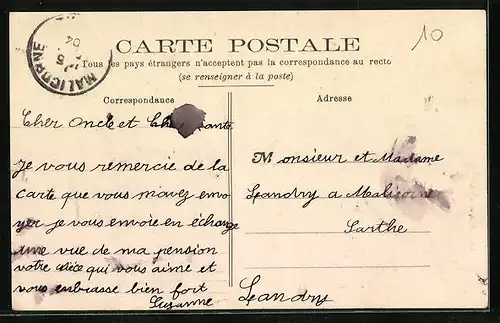 10
MALICORNE
5
04
CARTE POSTALE
Tous les pays étrangers n'acceptent pas la correspondance au recto
(se renseigner à la poste)
Correspondance
Cher Oncle et Chère tante
Je vous remercie de la
carte que vous m'avez envo
yer je vous envoie en échange
une vue de ma pension
votre nièce qui vous aime et
vous embrasse bien fort
Suzanne
Landry
Adresse
Monsieur et Madame
Landry a Malicorne
Sarthe